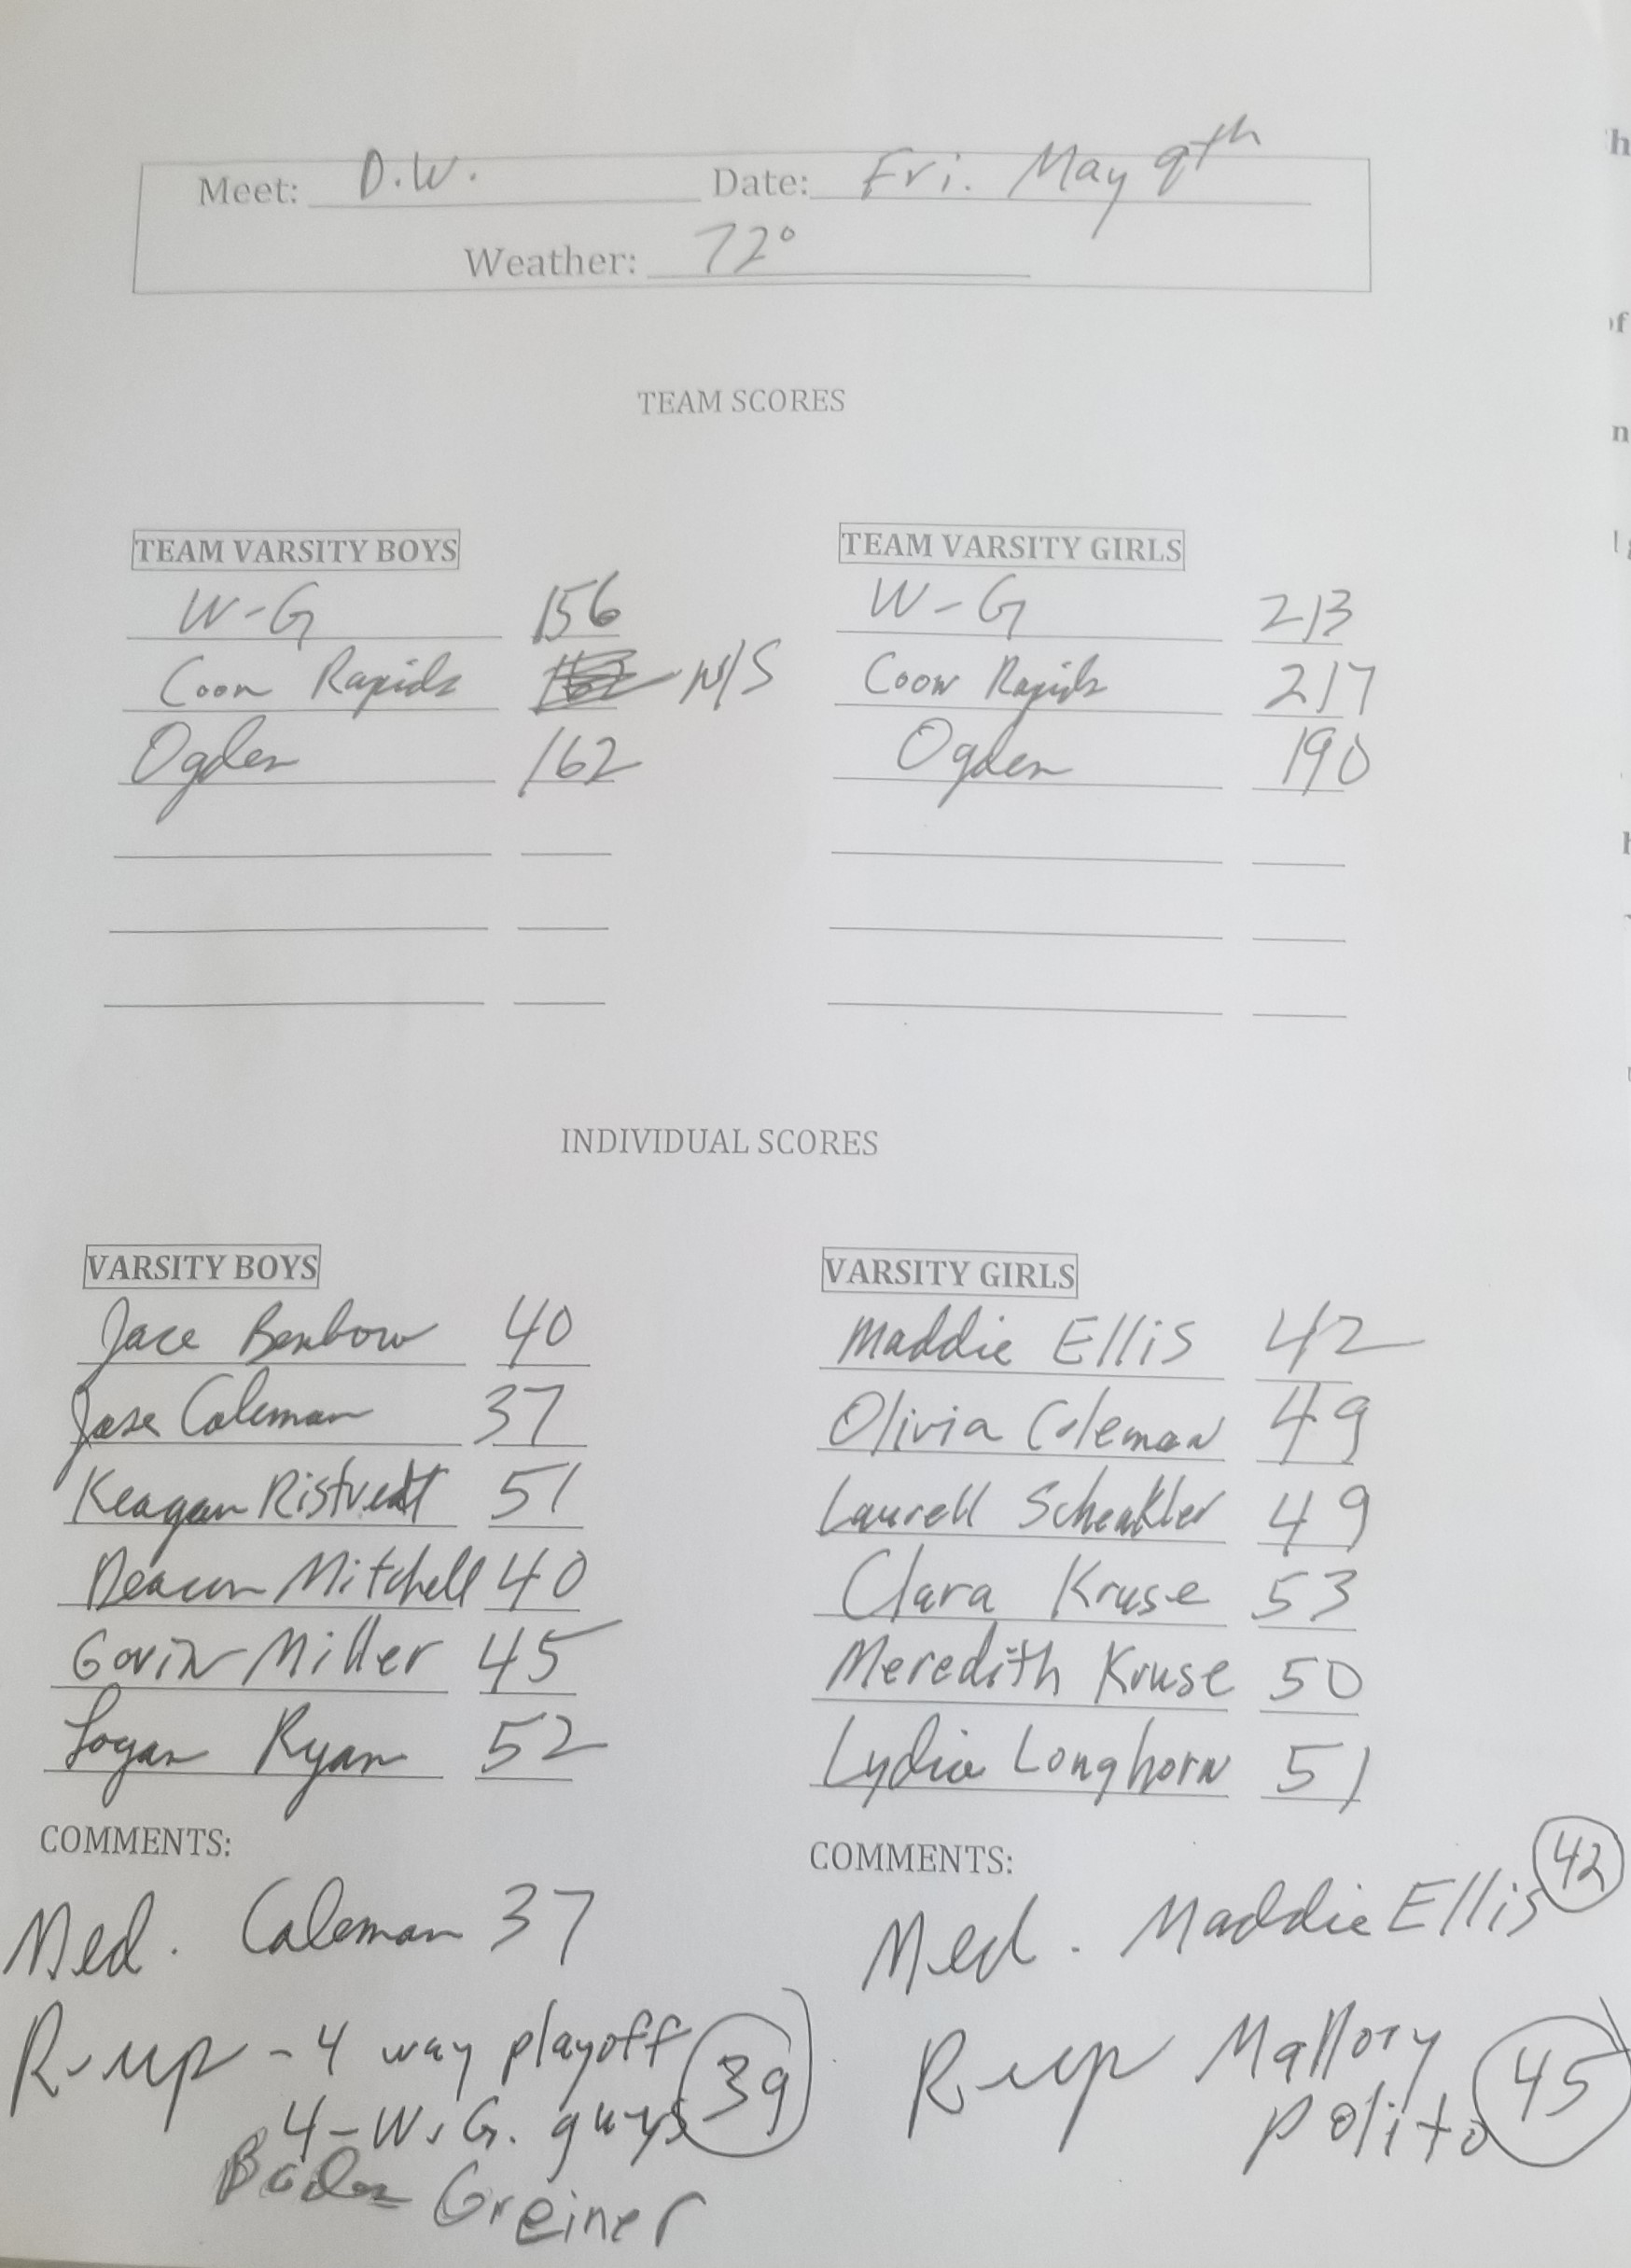 Meet: D.W. Date: Fri. May 9th
Weather: 72°
TEAM SCORES
TEAM VARSITY BOYS
W-G 156
Coon Rapids N/S
Ogden 162
TEAM VARSITY GIRLS
W-G 213
Coon Rapids 217
Ogden 190
INDIVIDUAL SCORES
VARSITY BOYS
Jace Benbow 40
Jase Coleman 37
Keagan Ristvedt 51
Deacon Mitchell 40
Gavin Miller 45
Logan Ryan 52
COMMENTS:
Med. Coleman 37
R-up - 4 way playoff
4-W.G. guys 39
Boden Greiner
VARSITY GIRLS
Maddie Ellis 42
Olivia Coleman 49
Laurell 49
Clara Kruse 53
Meredith Kruse 50
Lydia Longhorn 51
COMMENTS:
Med. Maddie Ellis 42
R-up Mallory
Polito 45